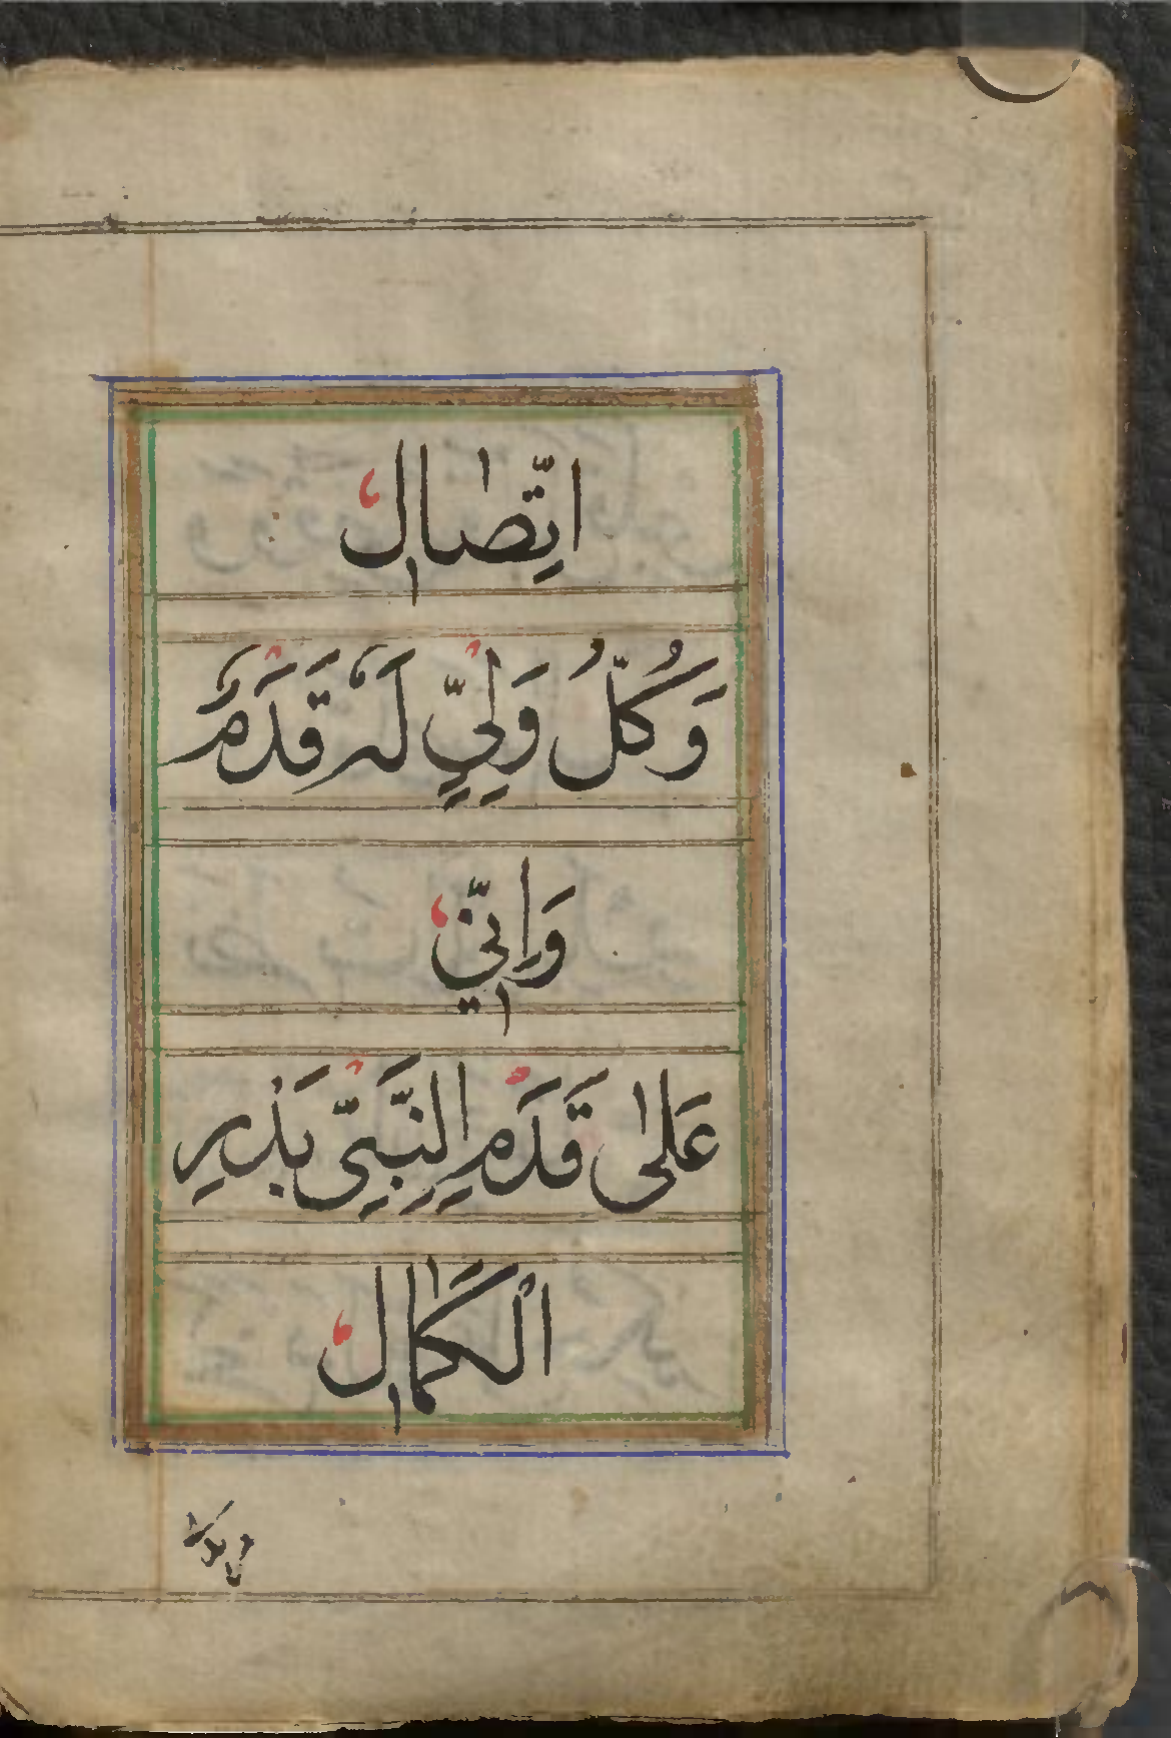 اتِّصَالِ
وَكُلُّ وَلِيٍّ لَهٗ قَدَمٌ
وَاِنِّيْ
عَلٰى قَدَمِ النَّبِيِّ بَدْرِ
الْكَمَالِ